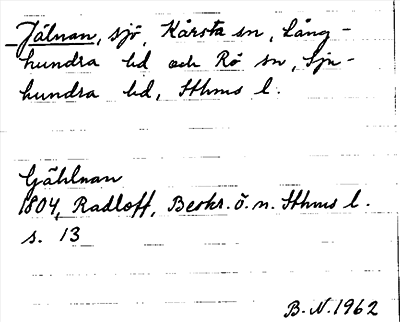 Jälnan, sjö, Kårsta sn, Lång-
hundra hd och Rö sn, Sju-
hundra hd, Sthms l.
Gählnan
1804, Radloff, Beskr. ö. n. Sthms l.
s. 13
B. N. 1962